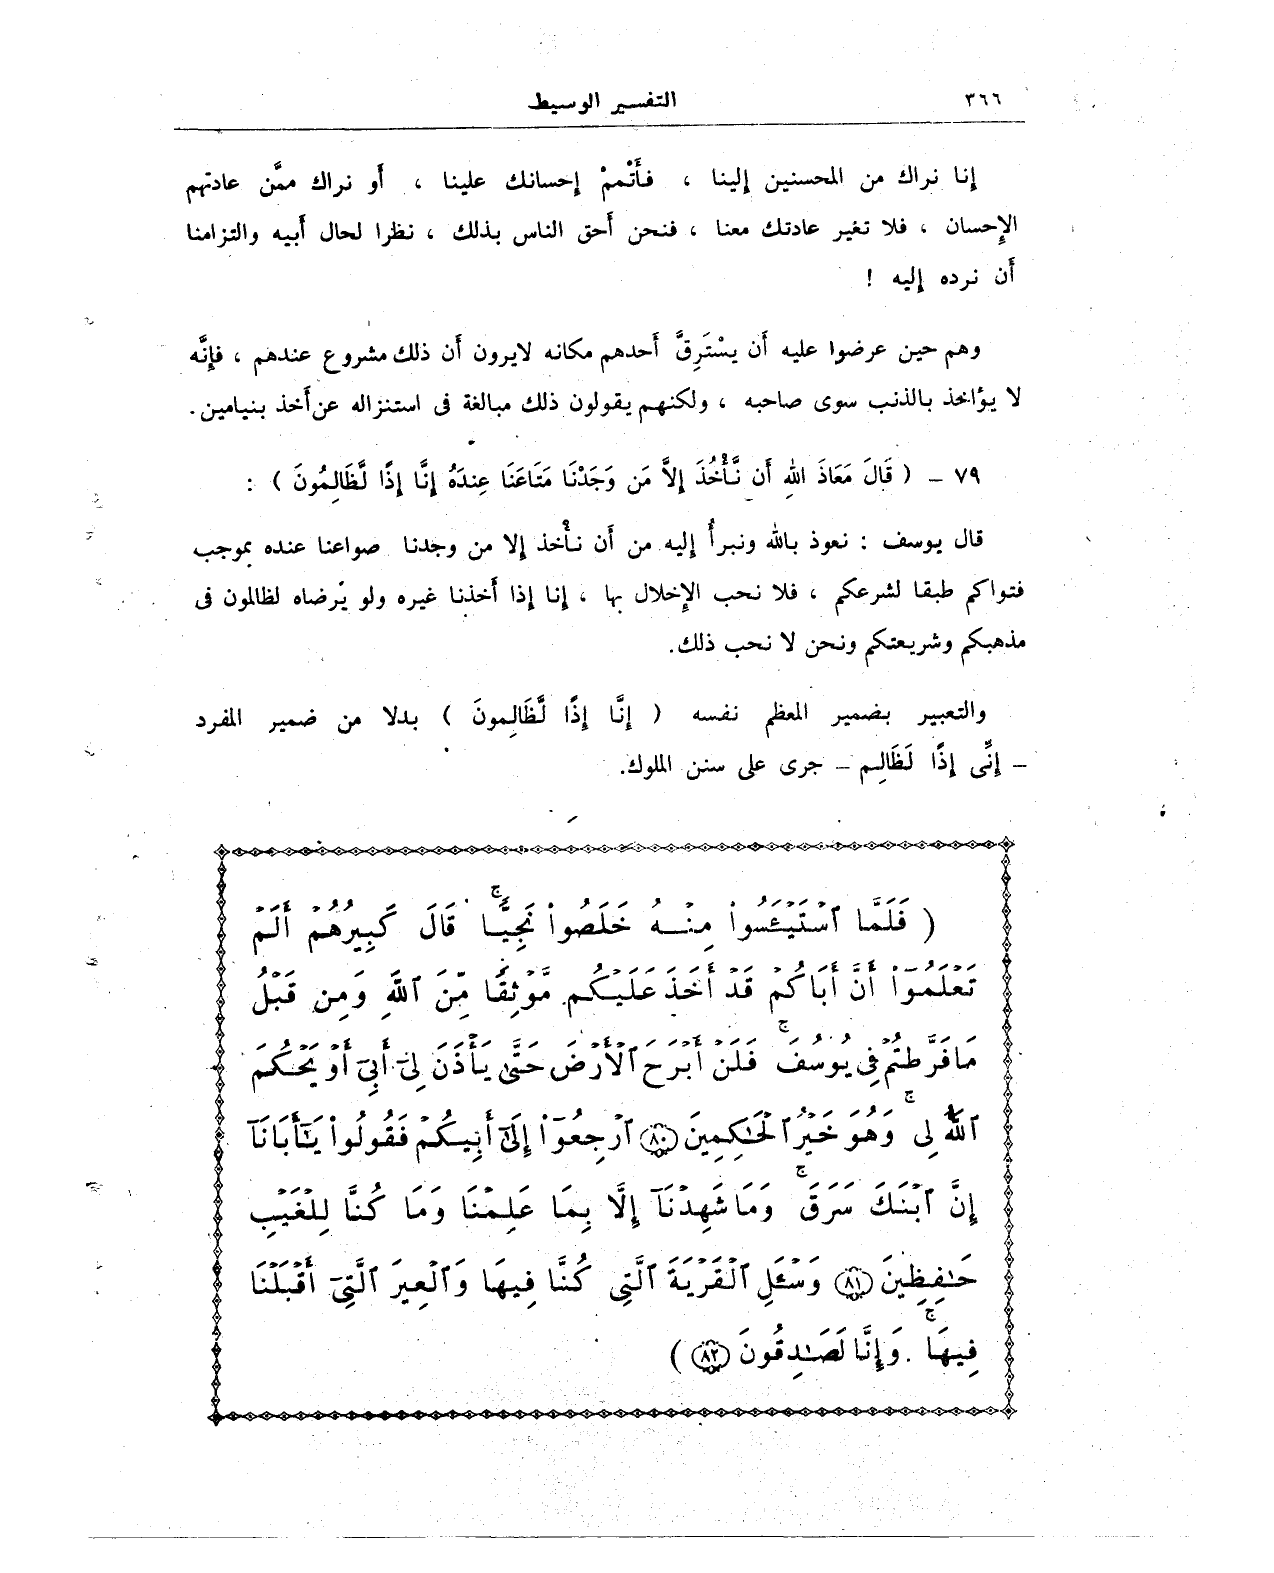 ٣٦٦
التفسير الوسيط
إنا نراك من المحسنين إلينا ، فأَتْممْ إحسانك علينا ، أو نراك ممَّن عادتهم
الإحسان ، فلا تغير عادتك معنا ، فنحن أحق الناس بذلك ، نظرا لحال أبيه والتزامنا
أن نرده إليه !
وهم حين عرضوا عليه أن يسْتَرِقَّ أحدهم مكانه لايرون أن ذلك مشروع عندهم ، فإنَّه
لا يؤاخذ بالذنب سوى صاحبه ، ولكنهم يقولون ذلك مبالغة فى استنزاله عن أخذ بنيامين.
٧٩ – ( قَالَ مَعَاذَ اللهِ أَن نَّأْخُذَ إِلاَّ مَن وَجَدْنَا مَتَاعَنَا عِندَهُ إِنَّا إِذًا لَّظَالِمُونَ ) :
قال يوسف : نعوذ بالله ونبرأُ إليه من أن نأخذ إلا من وجدنا صواعنا عنده بموجب
فتواكم طبقا لشرعكم ، فلا نحب الإخلال بها ، إنا إذا أخذنا غيره ولو برضاه لظالمون فى
مذهبكم وشريعتكم ونحن لا نحب ذلك.
والتعبير بضمير المعظم نفسه ( إِنَّا إِذًا لَّظَالِمونَ ) بدلا من ضمير المفرد
– إِنِّى إِذًا لَظَالِم – جرى على سنن الملوك.
( فَلَمَّا ٱسْتَيْـَٔسُوا۟ مِنْهُ خَلَصُوا۟ نَجِيًّا ۖ قَالَ كَبِيرُهُمْ أَلَمْ
تَعْلَمُوٓا۟ أَنَّ أَبَاكُمْ قَدْ أَخَذَ عَلَيْكُم مَّوْثِقًا مِّنَ ٱللَّهِ وَمِن قَبْلُ
مَا فَرَّطتُمْ فِى يُوسُفَ ۖ فَلَنْ أَبْرَحَ ٱلْأَرْضَ حَتَّىٰ يَأْذَنَ لِىٓ أَبِىٓ أَوْ يَحْكُمَ
ٱللَّهُ لِى ۖ وَهُوَ خَيْرُ ٱلْحَٰكِمِينَ ٨٠ ٱرْجِعُوٓا۟ إِلَىٰٓ أَبِيكُمْ فَقُولُوا۟ يَٰٓأَبَانَآ
إِنَّ ٱبْنَكَ سَرَقَ ۖ وَمَا شَهِدْنَآ إِلَّا بِمَا عَلِمْنَا وَمَا كُنَّا لِلْغَيْبِ
حَٰفِظِينَ ٨١ وَسْـَٔلِ ٱلْقَرْيَةَ ٱلَّتِى كُنَّا فِيهَا وَٱلْعِيرَ ٱلَّتِىٓ أَقْبَلْنَا
فِيهَا ۖ وَإِنَّا لَصَٰدِقُونَ ٨٢ )